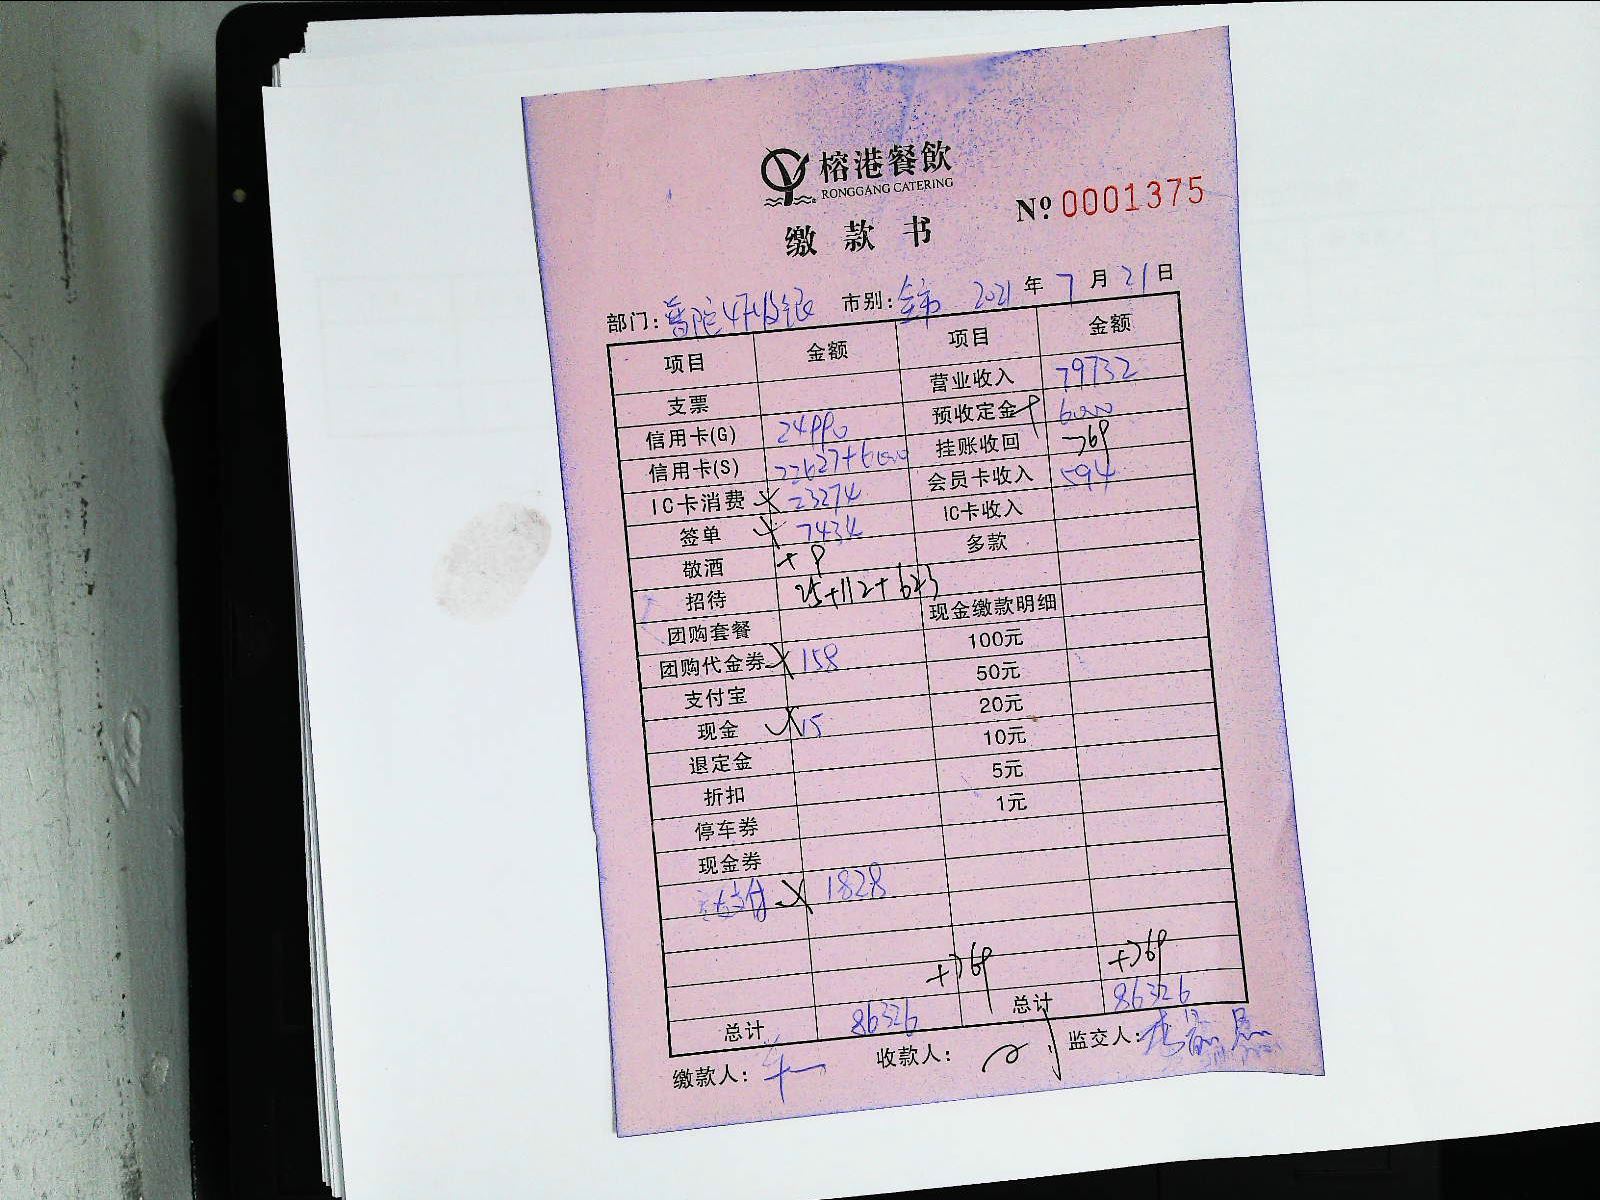 榕港餐飲
RONGGANG CATERING
缴款书
№ 0001375
部门: 普陀4F收银 市别: 全市 2021 年 7 月 21 日
项目 金额 项目 金额
支票 营业收入 79732
信用卡(G) 24990 预收定金 6000
信用卡(S) 22627+6000 挂账收回 769
IC卡消费 23274 会员卡收入 594
签单 7434 IC卡收入
敬酒 +9 多款
招待 25+112+623
团购套餐 现金缴款明细
团购代金券 158 100元
支付宝 50元
现金 15 20元
退定金 10元
折扣 5元
停车券 1元
现金券
支付 1828
+769 +769
总计 86326 总计 86326
缴款人: 收款人: 监交人: